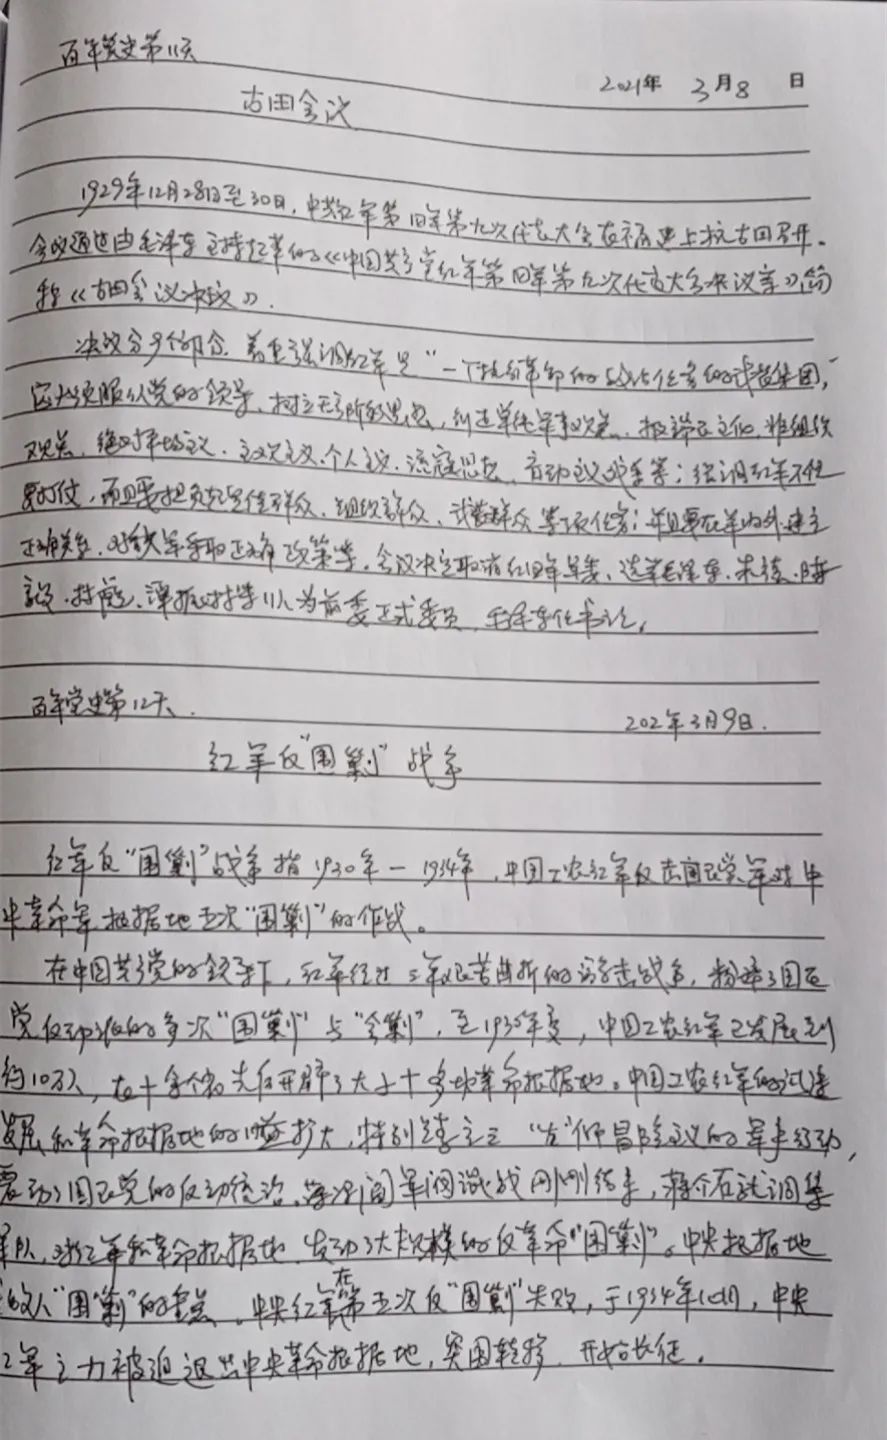 百年党史第11天
2021年 3月8 日
古田会议
1929年12月28日至30日，中共红军第四军第九次代表大会在福建上杭古田召开。
会议通过由毛泽东主持起草的《中国共产党红军第四军第九次代表大会决议案》，简
称《古田会议决议》.
决议分9个部分，着重强调红军是“一个执行革命的政治任务的武装集团，”
它必须服从党的领导，树立无产阶级思想，纠正单纯军事观点、报告主义、非组织
观点、绝对平均主义、主观主义、个人主义、流寇思想、盲动主义残余等；强调红军不仅
要打仗，而且要担负起宣传群众、组织群众、武装群众等项任务；并且要在军内外建立
正确关系，对敌军采取正确政策等。会议决定取消红四军军委，选举毛泽东、朱德、陈
毅、林彪、谭震林等11人为前委正式委员，毛泽东任书记。
百年党史第12天.
202年3月9日.
红军反“围剿”战争
红军反“围剿”战争指1930年—1934年，中国工农红军反击国民党军对中
央革命军根据地五次“围剿”的作战。
在中国共产党的领导下，红军经过三年艰苦曲折的游击战争，粉碎了国民
党反动派的多次“围剿”与“会剿”，至1930年夏，中国工农红军已发展到
约10万人，在十多个省先后开辟了大小十多块革命根据地。中国工农红军的迅速
发展和革命根据地的日益扩大，特别是李立三“左”倾冒险主义的军事行动，
震动了国民党的反动统治。蒋冯阎军阀混战刚刚结束，蒋介石就调集
军队，对红军和革命根据地，发动了大规模的反革命“围剿”。中央根据地
是敌人“围剿”的重点。中央红军在第五次反“围剿”失败，于1934年10月，中央
红军主力被迫退出中央革命根据地，突围转移，开始长征。